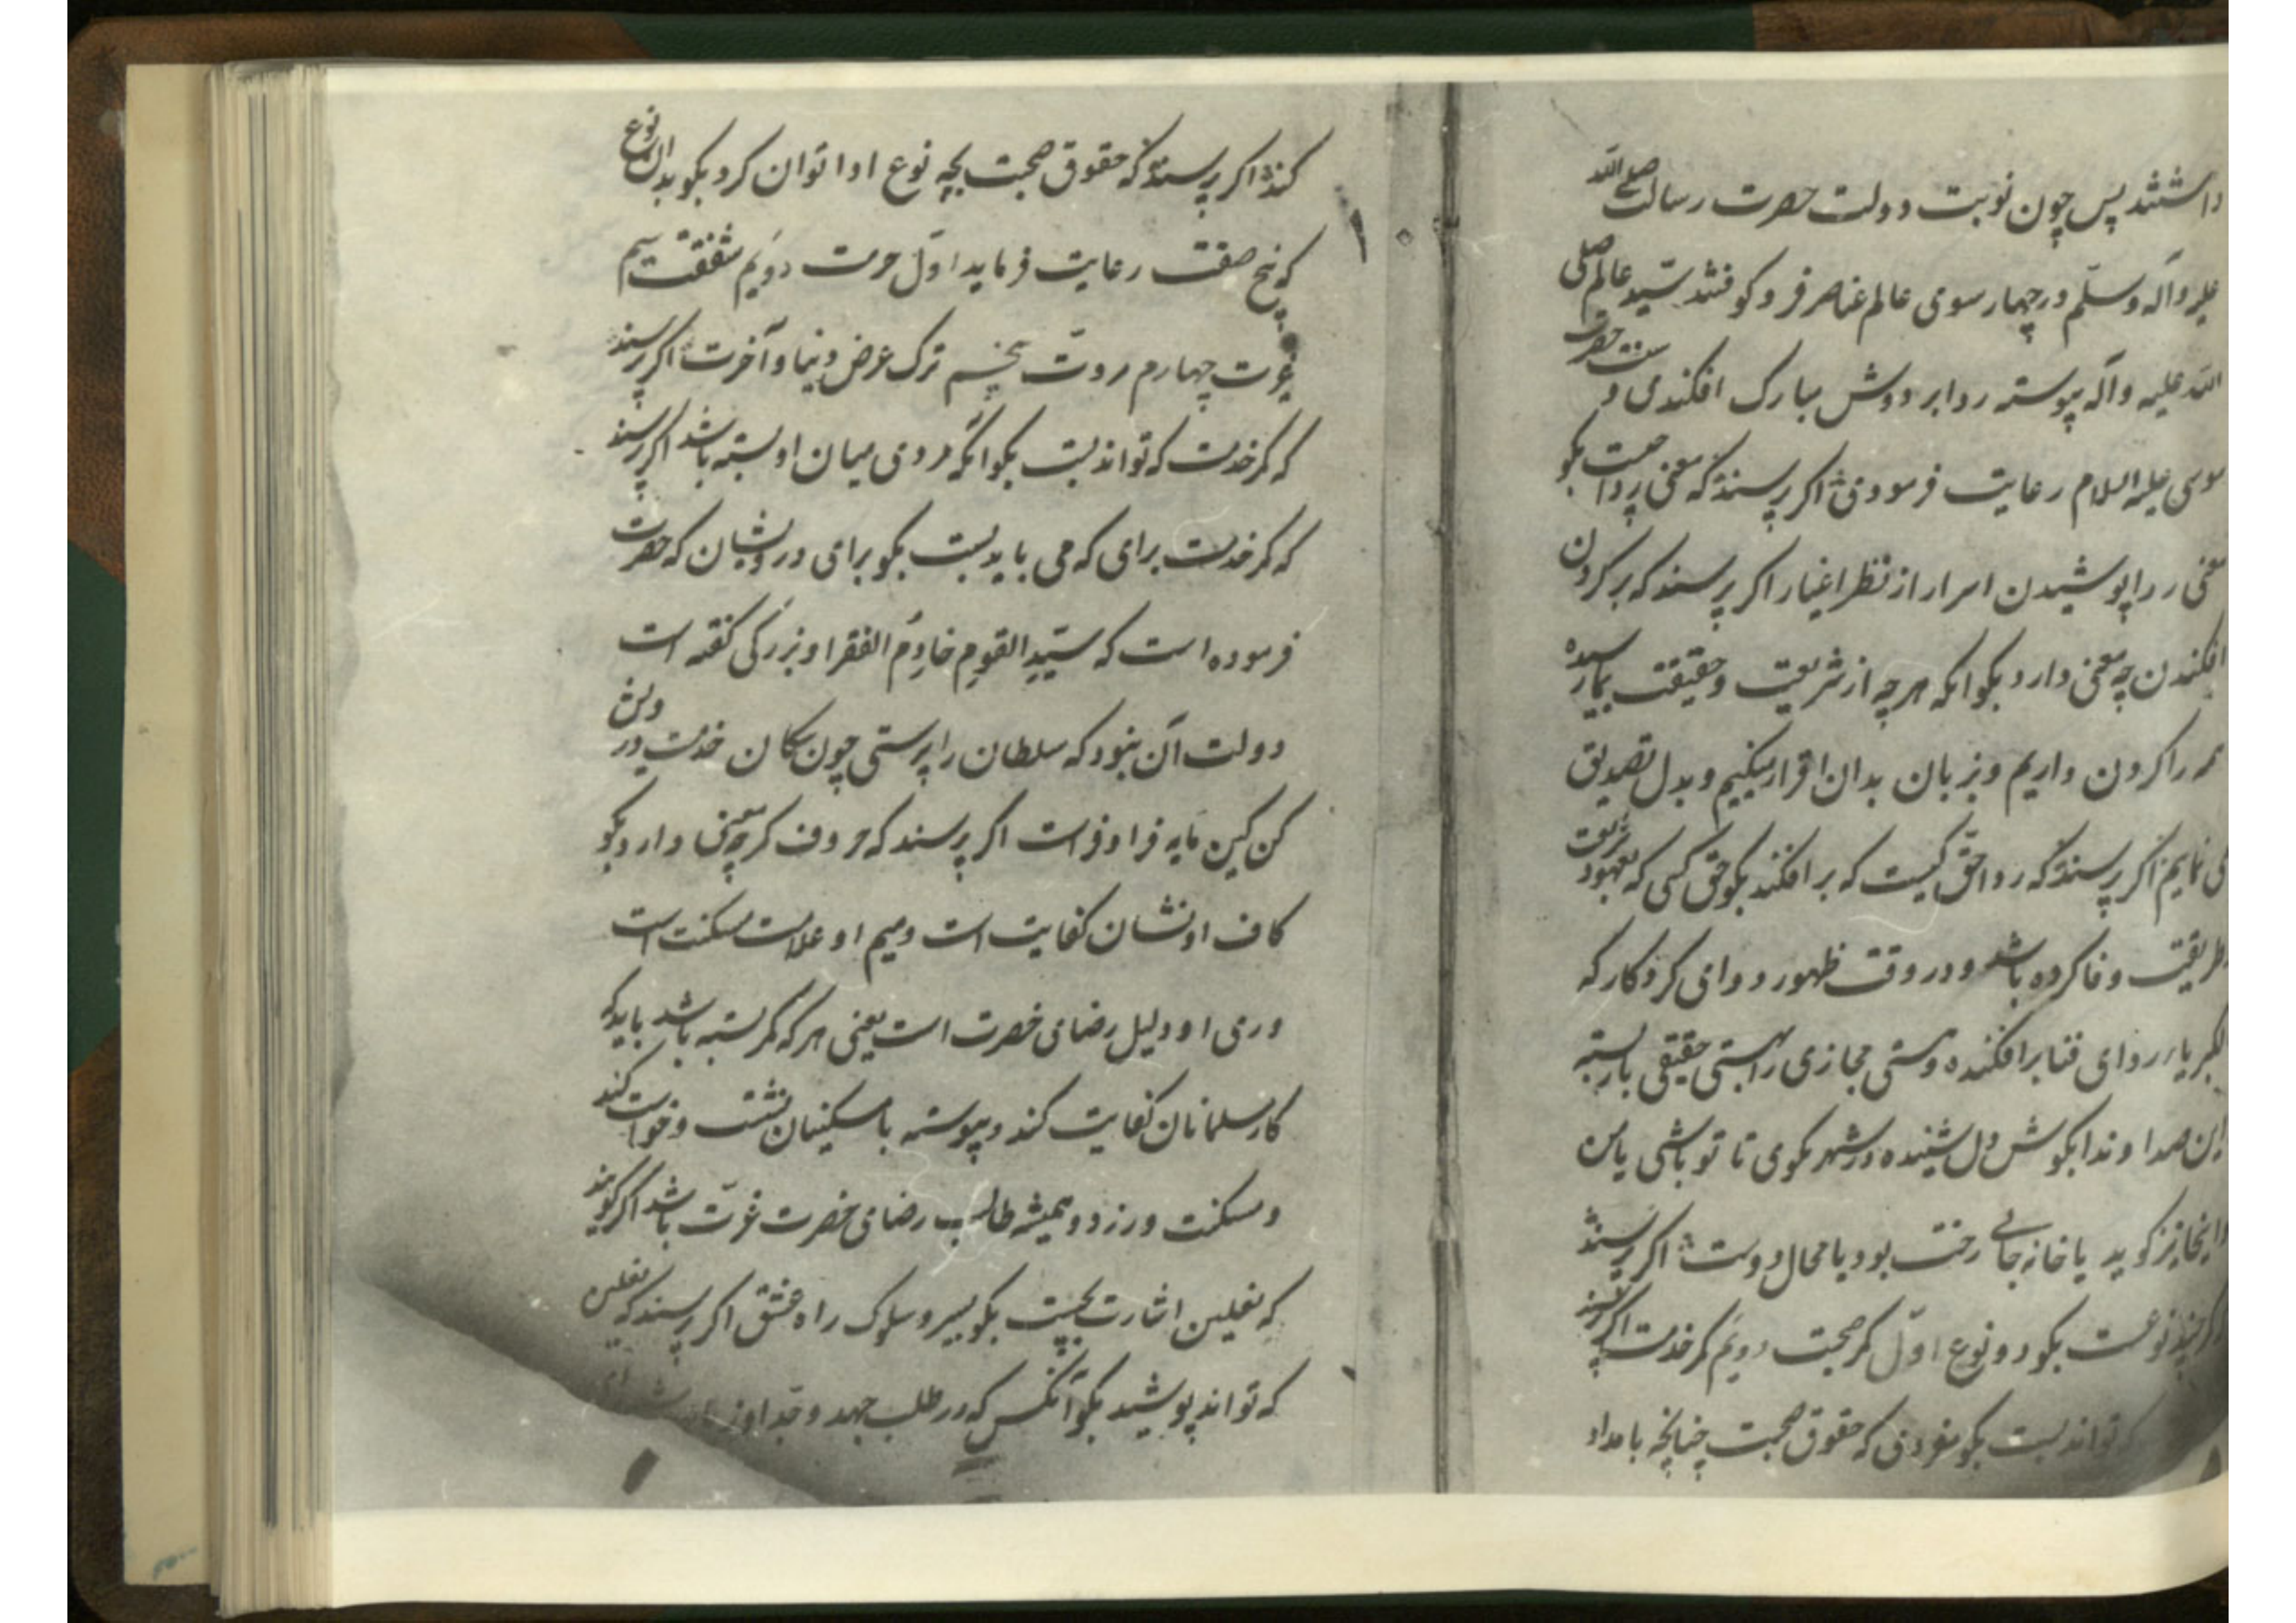 داشتند پس چون نوبت دولت حضرت رسالت صلی الله
علیه وآله وسلّم در چهار سوی عالم عناصر فرو کوفتند سیّد عالم صلی
الله علیه وآله پیوسته ردا بر دوش مبارک افکندی و سنت حضرت
موسی علیه السلام رعایت فرمودی اکر پرسند که معنی ردا چیست بکو
معنی ردا پوشیدن اسرار از نظر اغیار اکر پرسند که بر کردن
افکندن چه معنی دارد بکو انکه هر چه از شریعت و حقیقت بما رسیده
همه را کردن داریم و بزبان بدان اقرار میکنیم و بدل تصدیق
می نمایم اکر پرسند که ردا حق کیست که بر افکند بکو حق کسی که بعهود شریعت
طریقت وفا کرده باشد و در وقت ظهور دوامی کردکار که
الکبریاء ردای فنا بر افکنده و هستی مجازی را بهستی حقیقی باز بسته
این صدا و ندا بکوش دل شنیده در شهر بکوی تا تو باشی یا من
و اینجا نیز کوید یا خانه جای رخت بود یا مجال دوست اکر پرسند
کمر چند نوعست بکو دو نوع اوّل کمر صحبت دویم کمر خدمت اکر پرسند
که تواند بست بکو مفردی که حقوق صحبت چنانچه باید ادا
کند اکر پرسند که حقوق صحبت بچه نوع ادا توان کرد بکو بدان نوع
که پنج صفت رعایت فرماید اوّل حرمت دویم شفقت سیم
غیرت چهارم مروّت پنجم ترک عرض دنیا و آخرت اکر پرسند
که کمر خدمت که تواند بست بکو انکه مردی میان او بسته باشد اکر پرسند
که کمر خدمت برای که می باید بست بکو برای درویشان که حضرت
فرموده است که سیّد القوم خادم الفقرا و بزرکی کفته است
دولت آن نبود که سلطان را پرستی چون سکان خدمت درویش
کن کین مایه فر اوفر است اکر پرسند که حروف کمر چه معنی دارد بکو
کاف او نشان کفایت است و میم او علامت مسکنت است
و ری او دلیل رضای حضرت است یعنی هر که کمر بسته باشد باید که
کار مسلمانان کفایت کند و پیوسته با مسکینان نشست و خواست کند
و مسکنت ورزد و همیشه طالب رضای حضرت عزّت باشد اکر کویند
که نعلین اشارت بچیست بکو بسیر و سلوک راه عشق اکر پرسند که نعلین
که تواند پوشید بکو آنکس که در طلب جهد و جدّ او